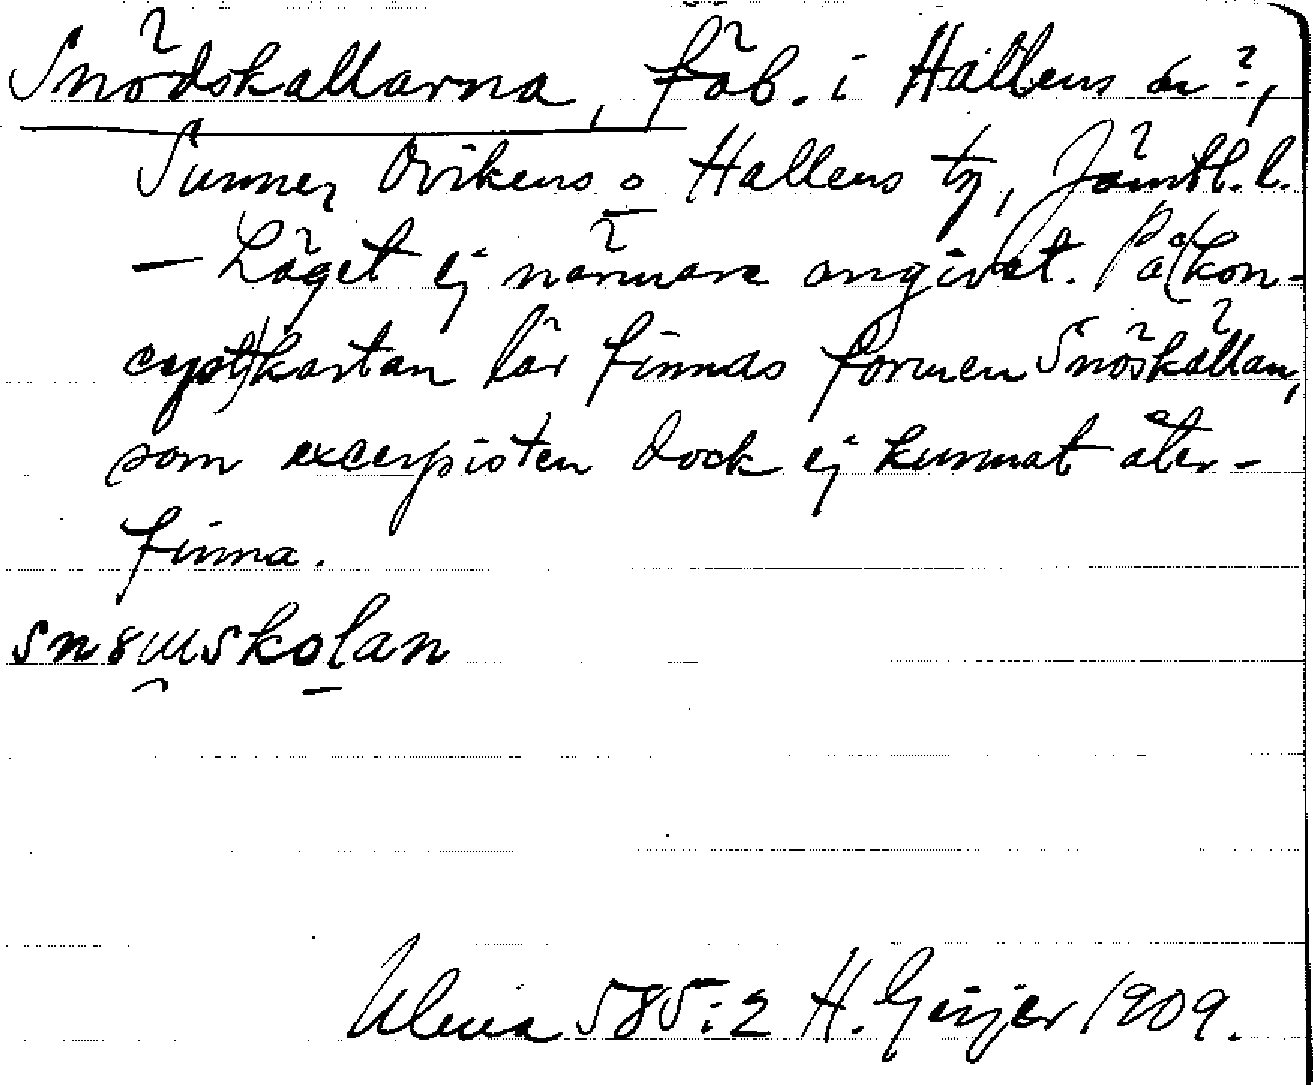 Snödskallarna, fäb. i Hallens sn?,
Sunnes, Ovikens o Hallens tg, Jämtl. l.
— Läget ej närmare angivet. På (kon-
cept)kartan lär finnas formen Snöskällan,
som excerpisten dock ej kunnat åter-
finna.
Ulma 585:2 H. Geijer 1909.